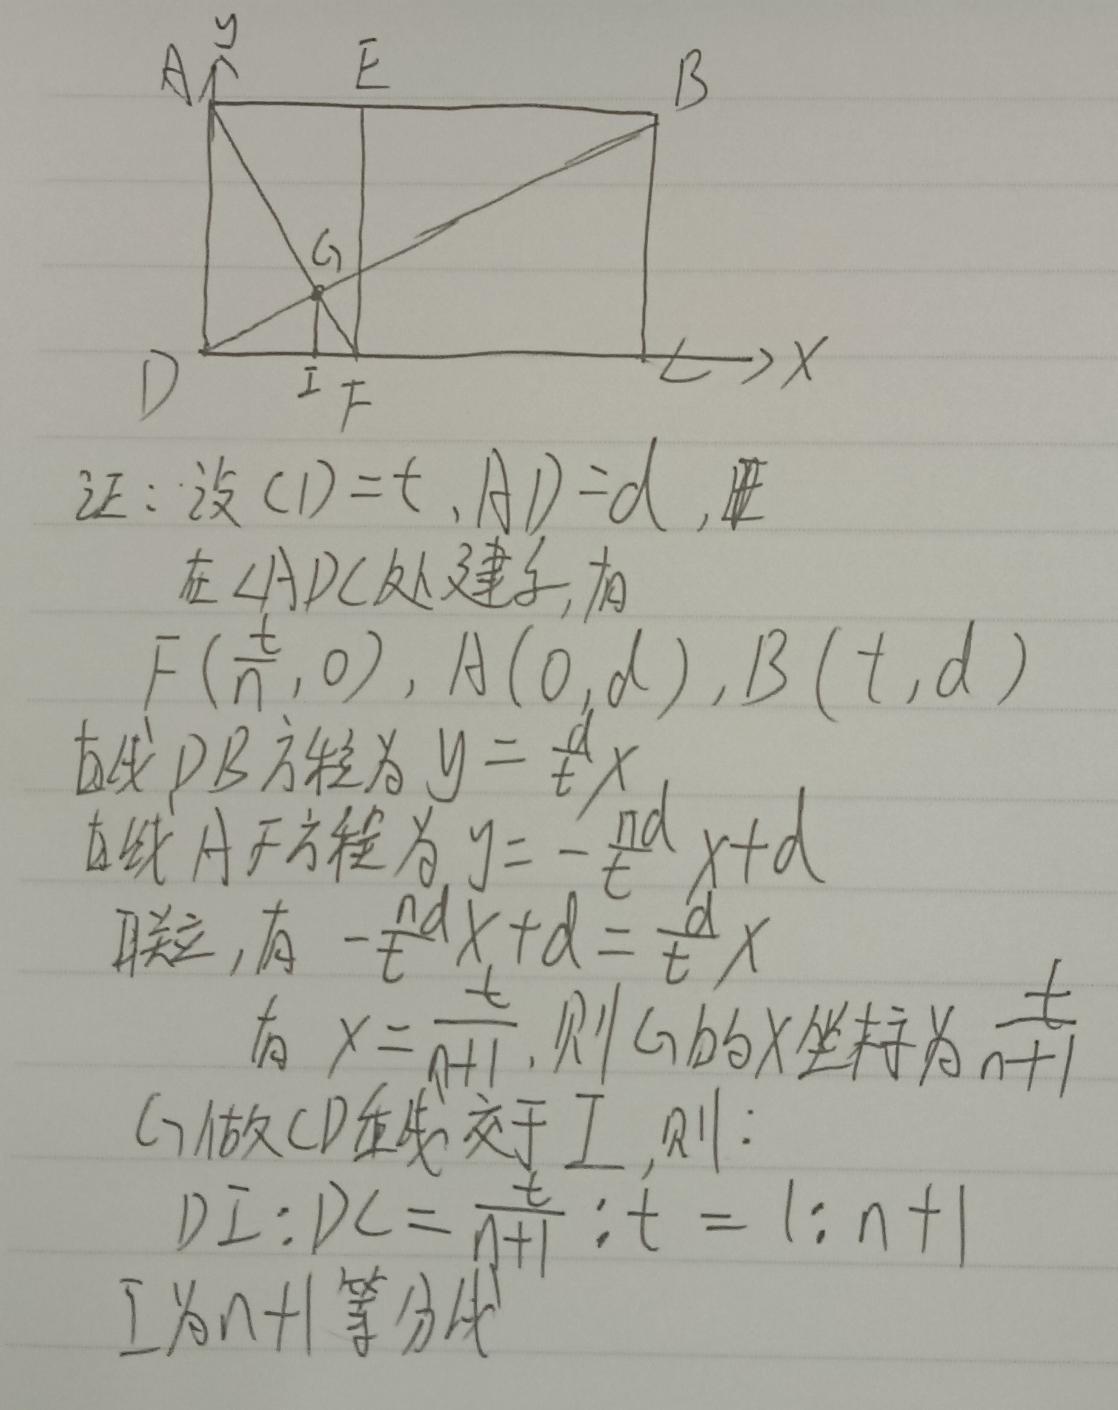 y
A E B
G
D I F C X
证：设CD=t、AD=d，
在∠ADC处建系，有
F(t/n, 0), A(0,d), B(t,d)
直线DB方程为 y = d/t x
直线AF方程为 y = - nd/t x+d
联立，有 - nd/t x+d = d/t x
有 x = t/n+1，则G的x坐标为 t/n+1
G做CD垂线交于I，则：
DI:DC = t/n+1 : t = 1:n+1
I为n+1等分线